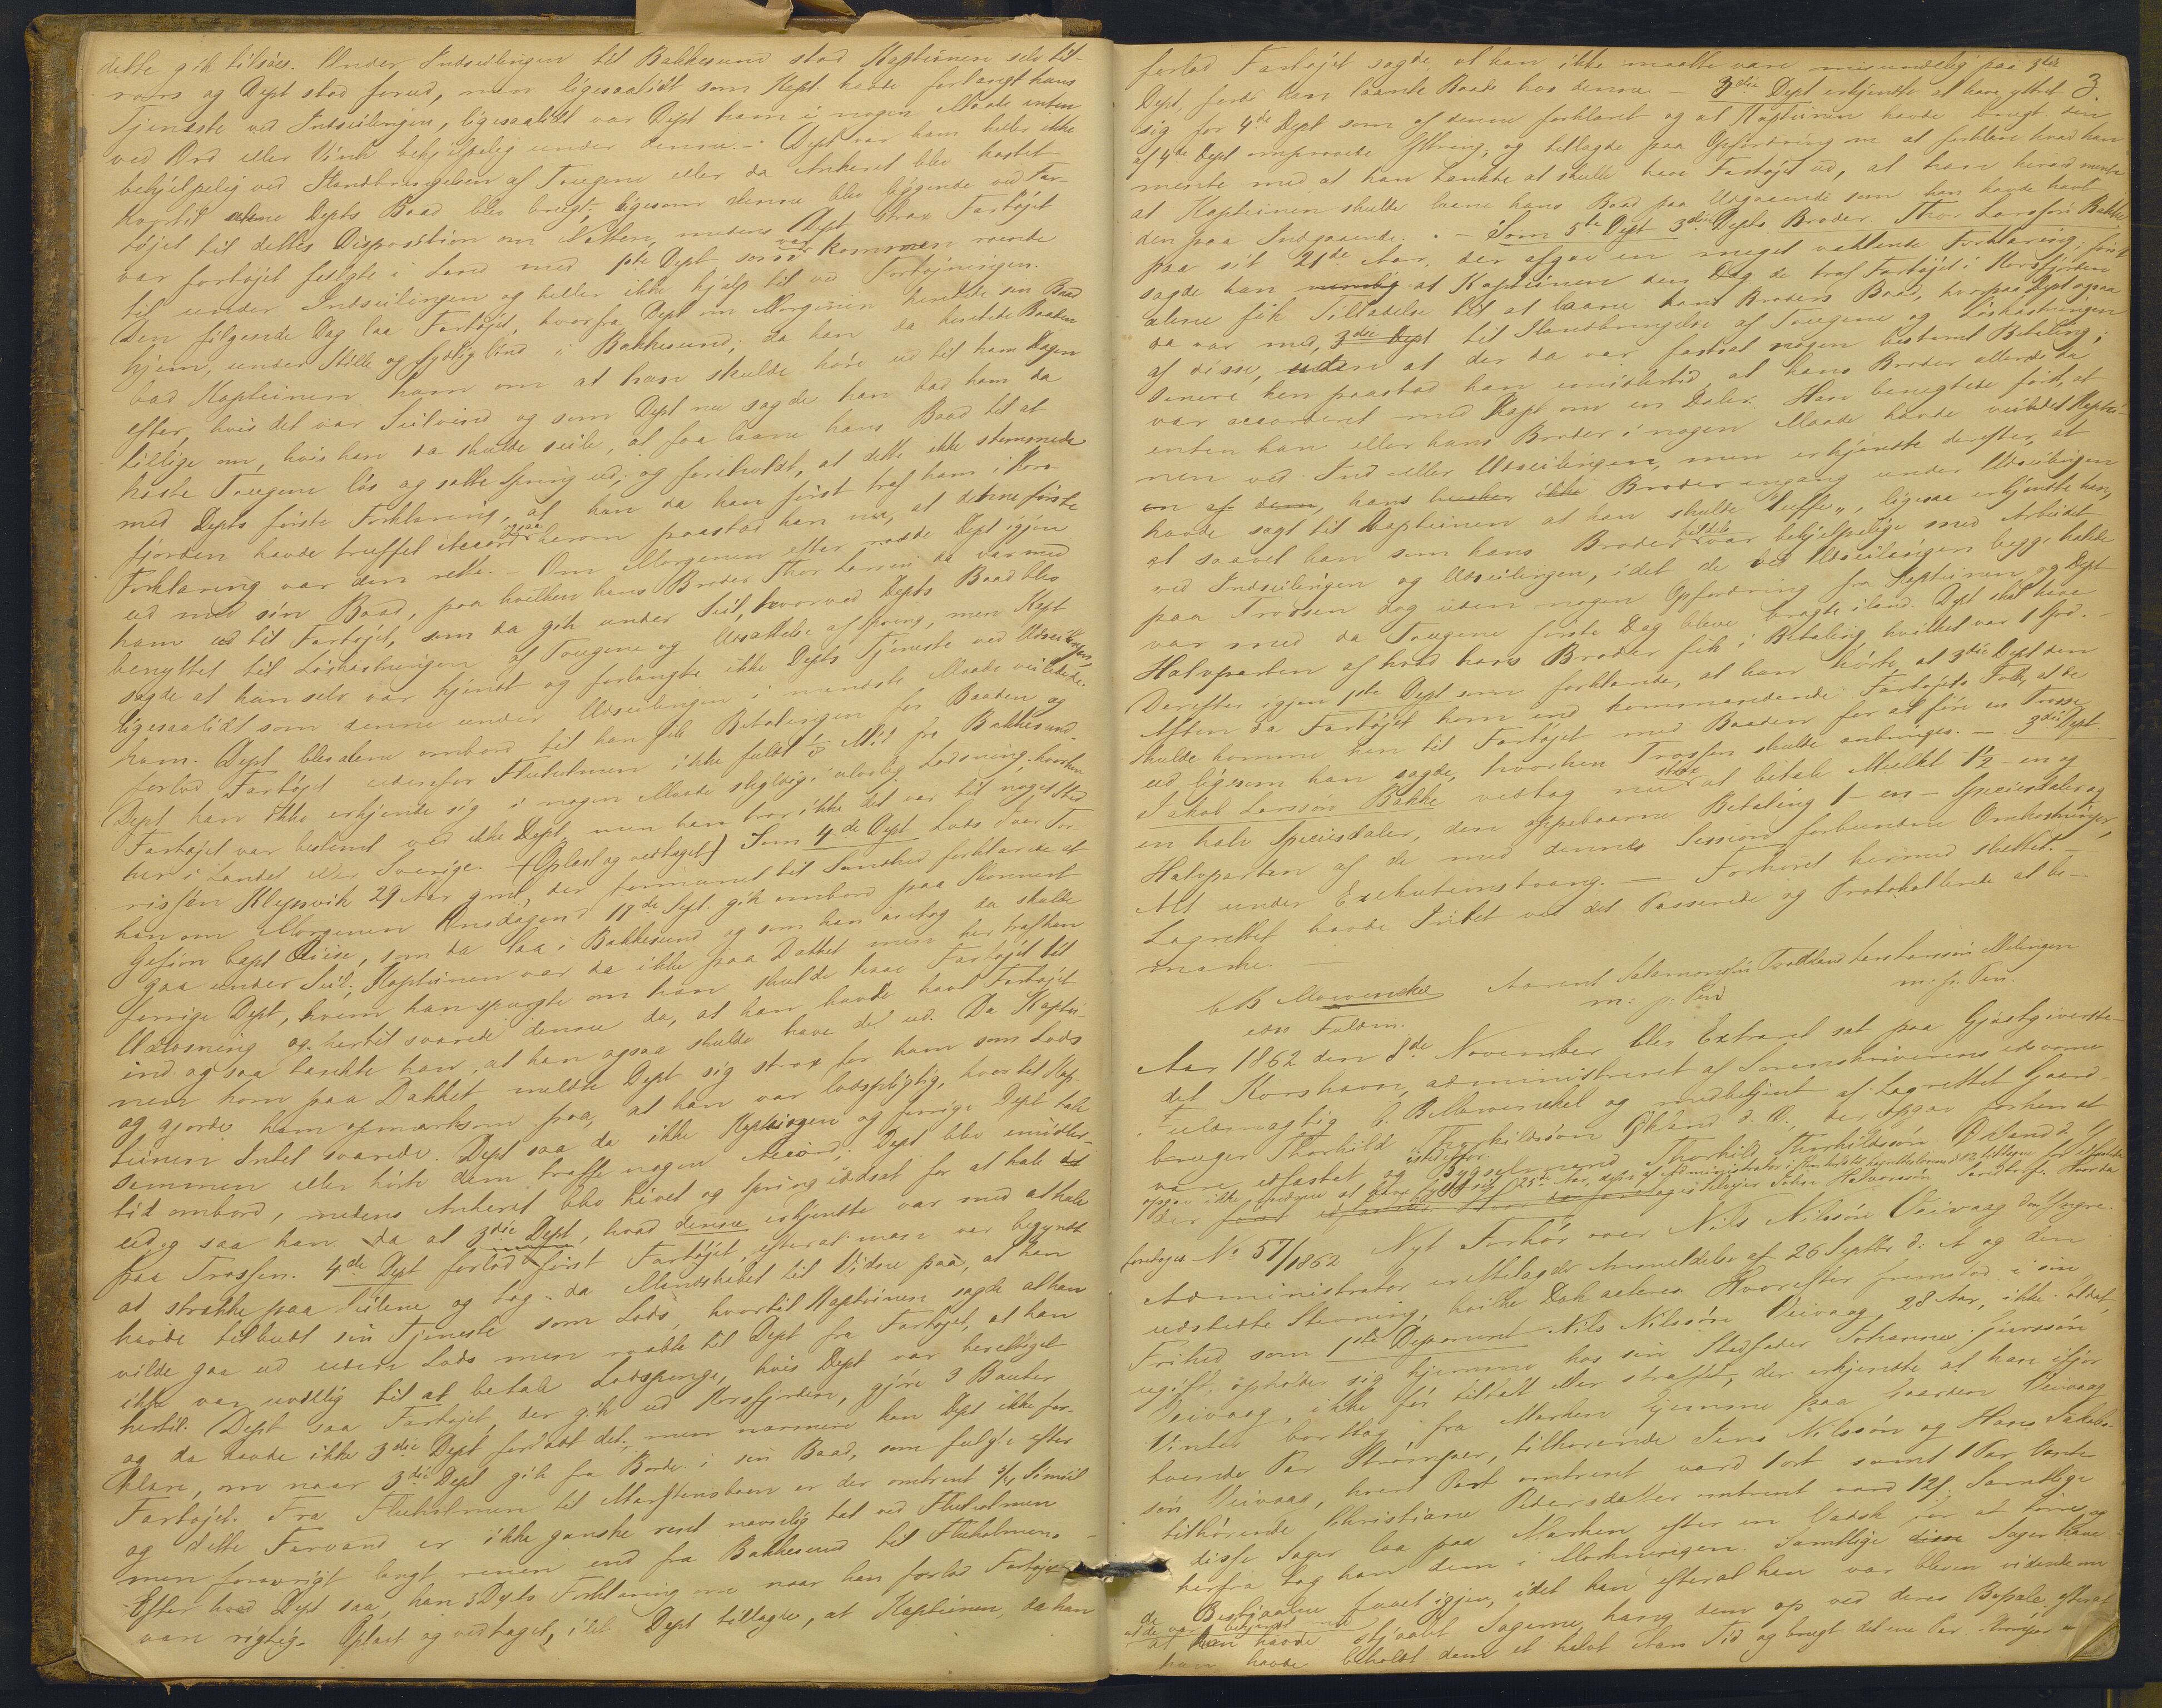 dette gik tilsøes. Under Indseilingen til Bakkesund stod Kapteinen selv til-
rors og Dept stod forud, men ligesaalidt som Kapt. havde forlangt hans
Tjeneste ved Indseilingen, ligesaalidt var Dept ham i nogen Maade enten
ved Ord eller Vink behjelpelig under denne. – Dept var ham heller ikke
behjelpelig ved Ilandbringelsen af Tougene eller da Ankeret blev kastet
hvortil Depts Baad blev brugt, ligesom denne blev liggende ved Far-
tøjet til dettes Disposition om Natten, medens Dept strax Fartøjet
var fortøjet fulgte i Land med 1ste Dept som var kommen roende
til under Indseilingen og heller ikke hjalp til ved Fortøjningen.
Den følgende Dag laa Fartøjet, hvorfra Dept om Morgenen hentede sin Baad
hjem, under Stille og sydlig Vind i Bakkesund; da han da hentede Baaden
bad Kapteinen ham om at han skulde høre ud til ham Dagen
efter, hvis det var Seilvind og som Dept nu sagde han bad ham da
tillige om, hvis han da skulde seile, at faa laane hans Baad til at
kaste Tougene løs og sætte Spring ud; og foreholdt, at dette ikke stemmede
med Depts første Forklaring, at han da han først traf ham i Kors-
fjorden havde truffet Accord ogsaa herom paastod han nu, at denne første
Forklaring var den rette. – Om Morgenen efter roede Dept igjen
ud med sin Baad, paa hvilken hans Broder Thor Larsen da var med
ham ud til Fartøjet, som da gik under Seil, hvorved Depts Baad blev
benyttet til Løskastningen af Tougene og Udsættelse af Spring, men Kapt
sagde at han selv var kjendt og forlangte ikke Depts Tjeneste ved Udseilingen,
ligesaalidt som denne under Udseilingen i mindste Maade veiledede
ham. Dept blev alene ombord til han fik Betalingen for Baaden og
forlod Fartøjet udenfor Fluholmen ikke fuldt ½ Mil fra Bakkesund.
Dept kan ikke erkjende sig i nogen Maade skyldig i ulovlig Lodsning; hvorhen
Fartøjet var bestemt ved ikke Dept, men han tror ikke det var til noget Sted
her i Landet eller Sverige. (Oplæst og vedtaget) Som 4de Dept Lods Iver Tor-
rissen Klepsvik 29 Aar gml, der formanet til Sandhed forklarede at
han om Morgenen Onsdagen d 17de Sept. gik ombord paa Skonnert
Gefion Capt Riise, som da laa i Bakkesund og som han antog da skulde
gaa under Seil; Kapteinen var da ikke paa Dækket men her traf han
forrige Dept, hvem han spurgte om han skulde have Fartøjet til
Udlosning og hertil svarede denne da, at han havde havt Fartøjet
ind og saa tænkte han, at han ogsaa skulde have det ud. Da Kaptei-
nen kom paa Dækket meldte Dept sig strax for ham som Lods
og gjorde ham opmærksom paa, at han var lodspligtig, hvortil Kap-
teinen Intet svarede. Dept saa da ikke Kapteinen og forrige Dept tale
sammen eller hørte dem træffe nogen Accord; Dept blev imidler-
tid ombord, medens Ankeret blev hivet og Spring udsat for at hale
ud og saa han da at 3die Dept, hvad denne erkjendte var med at hale
paa Trossen. 4de Dept forlod først Fartøjet, efterat man var begyndt
at strække paa Seilene og tog da Mandskabet til Vidne paa, at han
havde tilbudt sin Tjeneste som Lods, hvortil Kapteinen sagde at han
vilde gaa ud uden Lods men raabte til Dept fra Fartøjet, at han
ikke var uvillig til at betale Lodspenge, hvis Dept var berettiget
hertil. Dept saa Fartøjet, der gik ud Korsfjorden, gjøre 3 Bauter
og da havde ikke 3die Dept forladt det, men nærmere kan Dept ikke for-
klare, om naar 3die Dept gik fra Borde i sin Baad, som fulgte efter
Fartøjet. Fra Flueholmen til Marstensboen er der omtrent 3/4 Sømiil
og dette Farvand er ikke ganske rent navnlig tæt ved Flueholmen
men forøvrigt langt renere end fra Bakkesund til Flueholmen. –
Efter hvad Dept saa, kan 3 Depts Forklaring om naar han forlod Fartøjet
være rigtig. Oplæst og vedtaget, idet Dept tillagde, at Kapteinen, da han
3
forlod Fartøjet sagde, at han ikke maatte være misundelig paa 3die
Dept, fordi han laante Baad hos denne. – 3die Dept erkjendte at have yttret
sig for 4de Dept som af denne forklaret og at Kapteinen havde brugt den
af 4de Dept omprovede Yttring, og tillagde paa Opfordring om at forklare hvad han
mente med at han tænkte at skulle have Fartøjet ud, at han herved mente
at Kapteinen skulde laane hans Baad paa Udgaaende som han havde havt
den paa Indgaaende. – Som 5te Dept 3die Depts Broder Thor Larssøn Bakke
paa sit 21de Aar, der afgav en meget vaklende Forklaring; først
sagde han at Kapteinen den Dag de traf Fartøjet i Korsfjorden
alene fik Tilladelse til at laane hans Broders Baad, hvorpaa Dept ogsaa
da var med, til Ilandbringelse af Tougene og Løskastningen
af disse, uden at der da var fastsat nogen bestemt Betaling;
senere hen paastod han imidlertid, at hans Broder allerede da
var accorderet med Kapt om en Daler. Han benegtede først, at
enten han eller hans Broder i nogen Maade havde veiledet Kaptei-
nen ved Ind- eller Udseilingen, men erkjendte derefter, at
hans Broder engang under Udseilingen
havde sagt til Kapteinen at han skulde "luffe", ligesaa erkjendte han,
at saavel han som hans Broder var behjelpelige med Arbeidet
ved Indseilingen og Udseilingen, idet de ved Udseilingen begge halede
paa Trossen dog uden nogen Opfordring fra Kapteinen og Dept
var med da Tougene første Dag bleve bragte iland. Dept skal have
Halvparten af hvad hans Broder fik i Betaling hvilket var 1 Spd. –
Derefter igjen 1ste Dept som forklarede, at han hørte, at 3die Dept den
Aften da Fartøjet kom ind kommanderede Fartøjets Folk, at de
skulde komme hen til Fartøjet med Baaden for at føre en Trosse
ud ligesom han sagde, hvorhen Trossen skulde anbringes. – 3die Dept.
Jakob Larssøn Bakke vedtog nu strax at betale Mulkt 1½ – en og
en halv Speciesdaler, den oppebaarne Betaling 1 – en – Speciesdaler og
Halvparten af de med dennes Session forbundne Omkostninger,
Alt under Exekutionstvang. — Forhøret hermed sluttet. –
Lagrettet havde Intet ved det Passerede og Protokollerede at be-
mærke. –
CB Mowinckel Aarent Salamonsøn Trælland Lars Larssøn Milingen
edsv Fuldm. m: p: Pen m: p: Pen.
Aar 1862 den 8de November blev Extraret sat paa Gjæstgiverste-
det Korshavn, administreret af Sorenskriverens edsvorne
Fuldmægtig C. B. Mowinckel og medbetjent af Lagrettet Gaard-
bruger Thorkild Thorkildsøn Økland d. Æ, der opgav forhen at
være edfæstet og Bygselmand Thorkild Thorkildssøn Økland d. y.
No 57/1862 Nyt Forhør over Nils Nilssøn Veivaag den Yngre.
Administrator irettelagde Anmeldelse af 26 Septbr d: A og den
udstedte Stevning, hvilke Dok acteres. Hvorefter fremstod i sin
Frihed som 1ste Deponent Nils Nilssøn Veivaag 28 Aar, ikke
ugift, opholder sig hjemme hos sin Stedfader Johannes Iversøn
Veivaag, ikke før tiltalt eller straffet, der erkjendte at han ifjor
Vinter borttog fra Marken hjemme paa Gaarden Veivaag
tvende Par Strømper, tilhørende Jens Nilssøn og Hans Jakob-
søn Veivaag, hvert Part omtrent værd 1 ort samt 1 Par Vanter
tilhørende Christiane Pedersdatter omtrent værd 12 s. Samtlige
disse Sager laa paa Marken efter en Vadsk for at tørres og
herfra tog han dem i Mørkningen. Samtlige Sager have
de Bestjaalne faaet igjen, idet han efterat han var bleven vidende om
at de var bekjendt med
at han havde stjaalet Sagerne, hang dem op ved deres Bopæle, efterat
han havde beholdt dem et halvt Aars Tid og brugt det ene Par Strømper